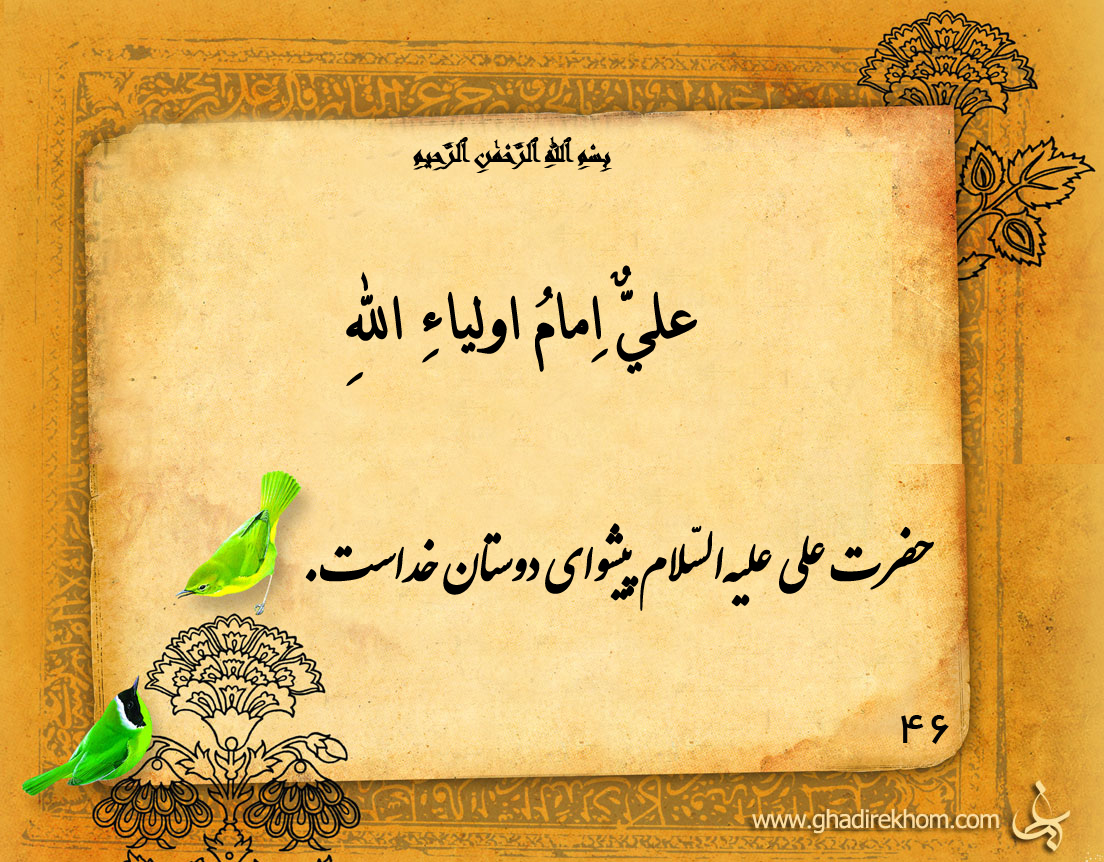 بِسْمِ ٱللَّهِ ٱلرَّحْمَٰنِ ٱلرَّحِيمِ
عليٌّ اِمامُ اولياءِ اللهِ
حضرت علی علیه‌السّلام پیشوای دوستان خداست.
۴۶
www.ghadirekhom.com